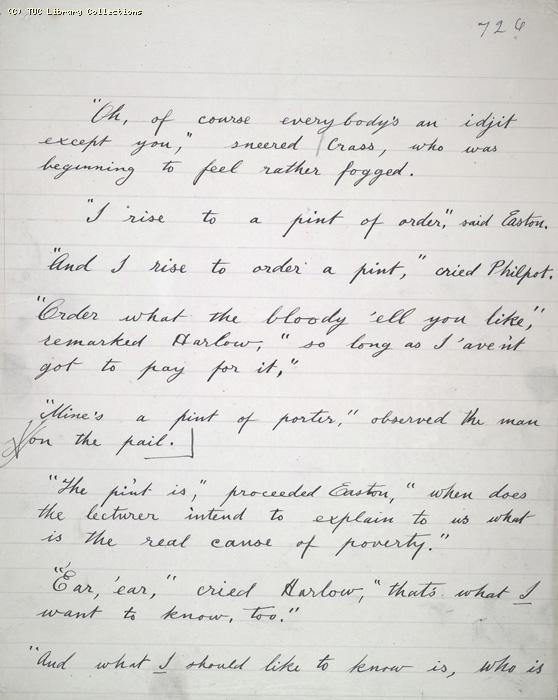 (C) TUC Library Collections
726
"Oh, of course everybody's an idjit
except you," sneered Crass, who was
beginning to feel rather fogged.
"I rise to a pint of order," said Easton.
"And I rise to order a pint," cried Philpot.
"Order what the bloody 'ell you like,"
remarked Harlow, "so long as I 'aven't
got to pay for it,"
"Mine's a pint of porter," observed the man
on the pail.
"The pint is," proceeded Easton, "when does
the lecturer intend to explain to us what
is the real cause of poverty."
"'Ear, 'ear," cried Harlow, "that's what I
want to know, too."
"And what I should like to know is, who is